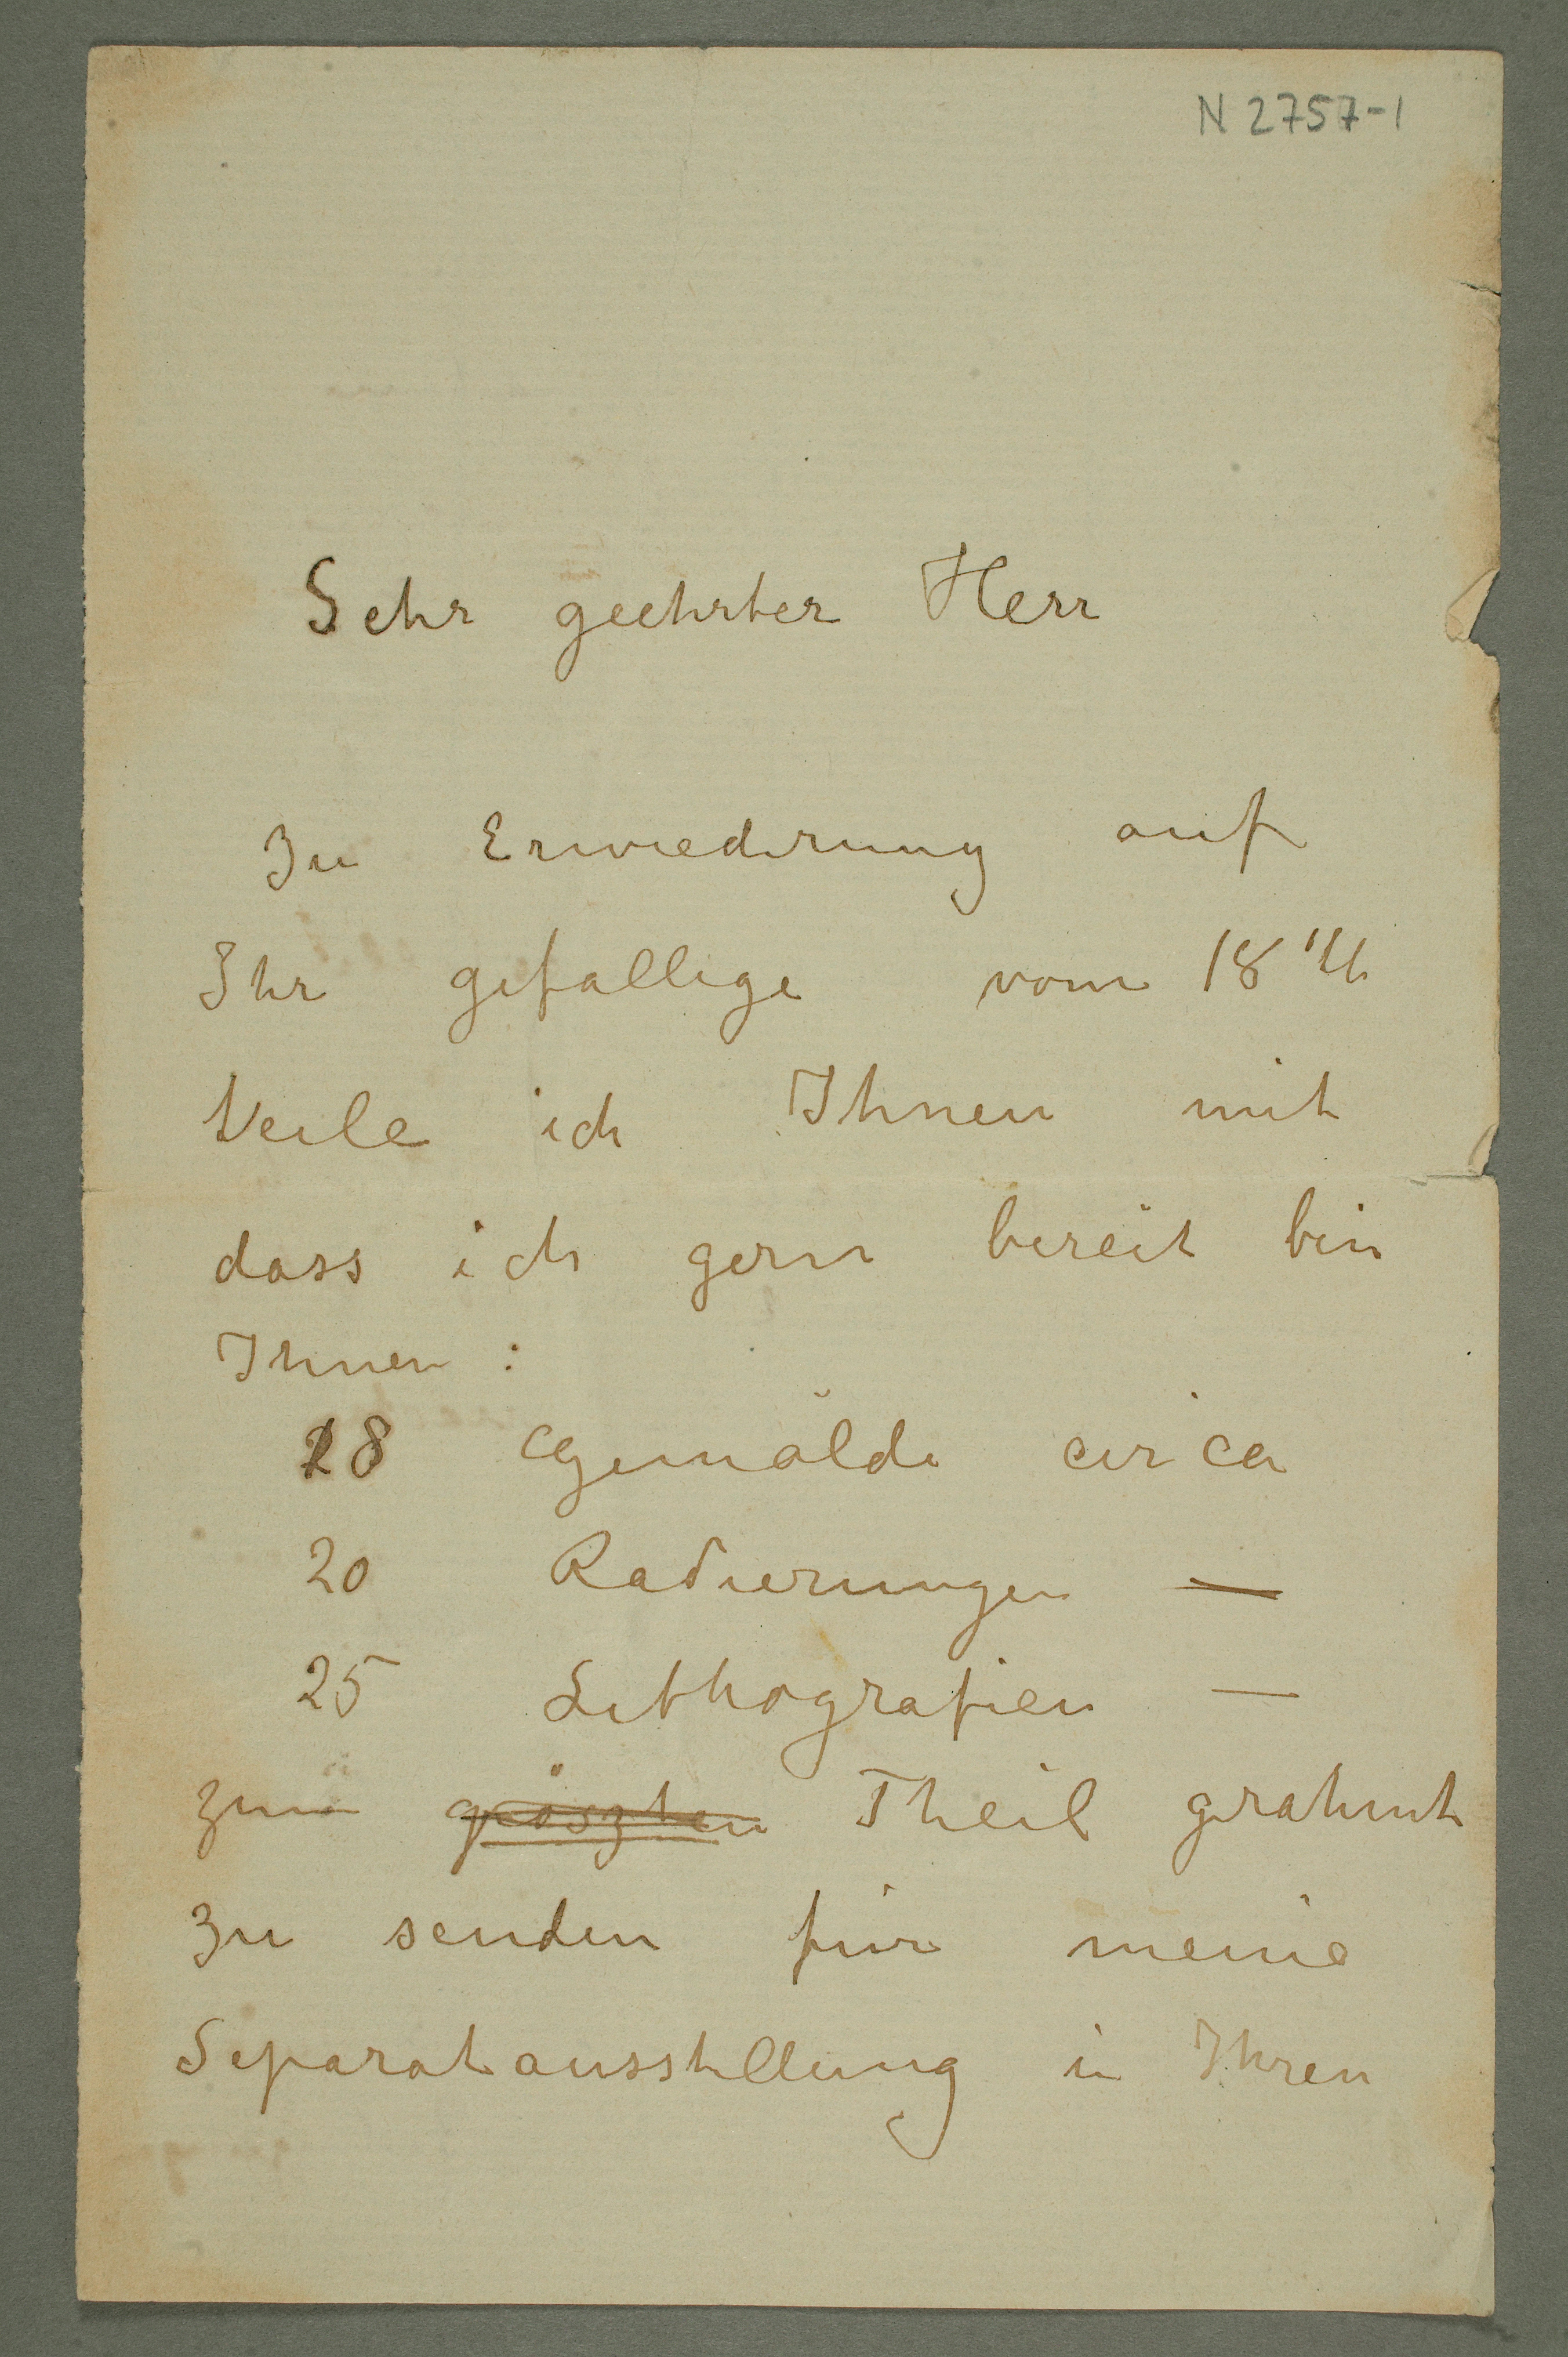 N 2757-1
Sehr geehrter Herr
Zu Erwiederung auf
Ihr gefallige vom 18
teile ich Ihnen mit
dass ich gern bereit bin
Ihnen :
18 Gemälde circa
20 Radierungen —
25 Lithografien —
zum größzten Theil grahmt
zu senden für meine
Separatausstellung in Ihren